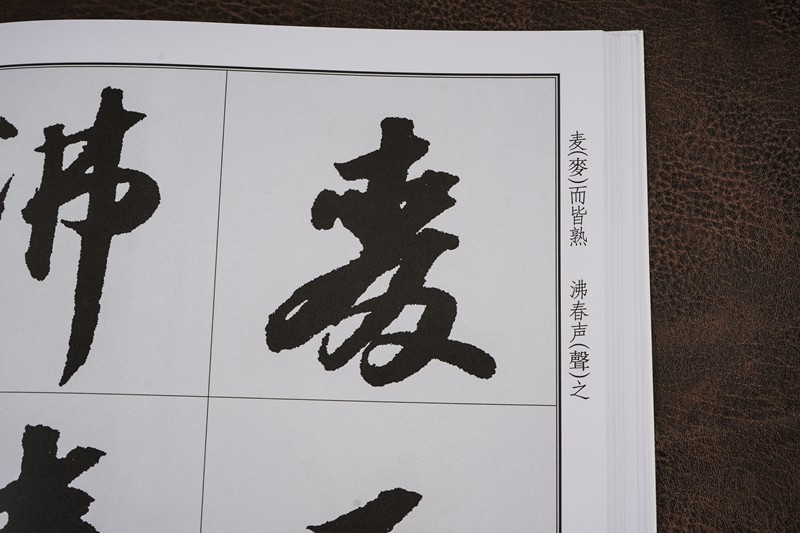 麦(麥)而皆熟 沸春声(聲)之
麥
沸